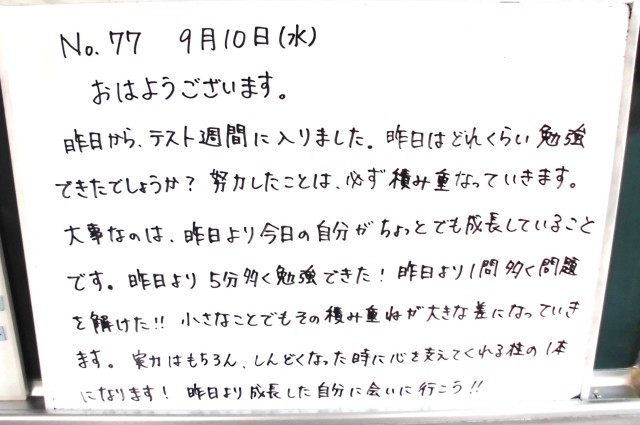 No. 77 9月10日(水)
おはようございます。
昨日から、テスト週間に入りました。昨日はどれくらい勉強
できたでしょうか?努力したことは、必ず積み重なっていきます。
大事なのは、昨日より今日の自分がちょっとでも成長していること
です。昨日より5分多く勉強できた!昨日より1問多く問題
を解けた!!小さなことでもその積み重ねが大きな差になっていき
ます。実力はもちろん、しんどくなった時に心を支えてくれる柱の1本
になります!昨日より成長した自分に会いに行こう!!